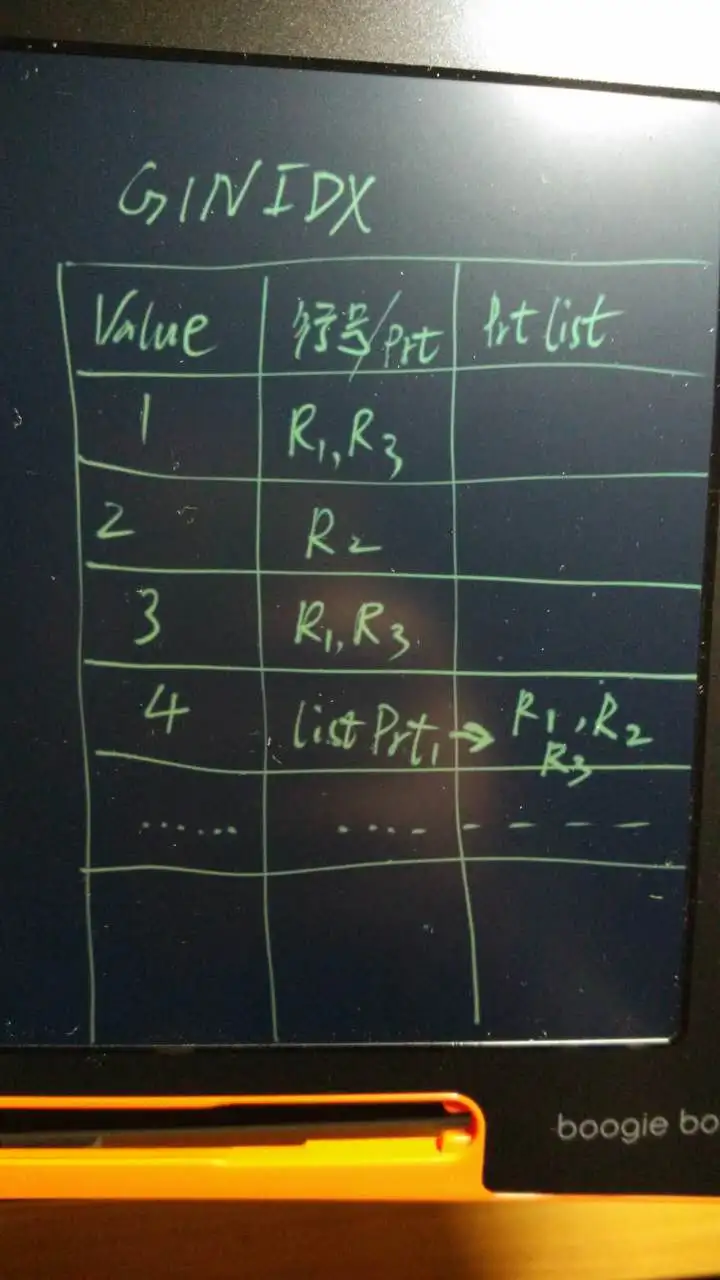 GIN IDX
Value 行号/Prt Prt list
1 R1,R3
2 R2
3 R1,R3
4 list Prt1 → R1,R2
R3
...... .... - - - - -
boogie bo